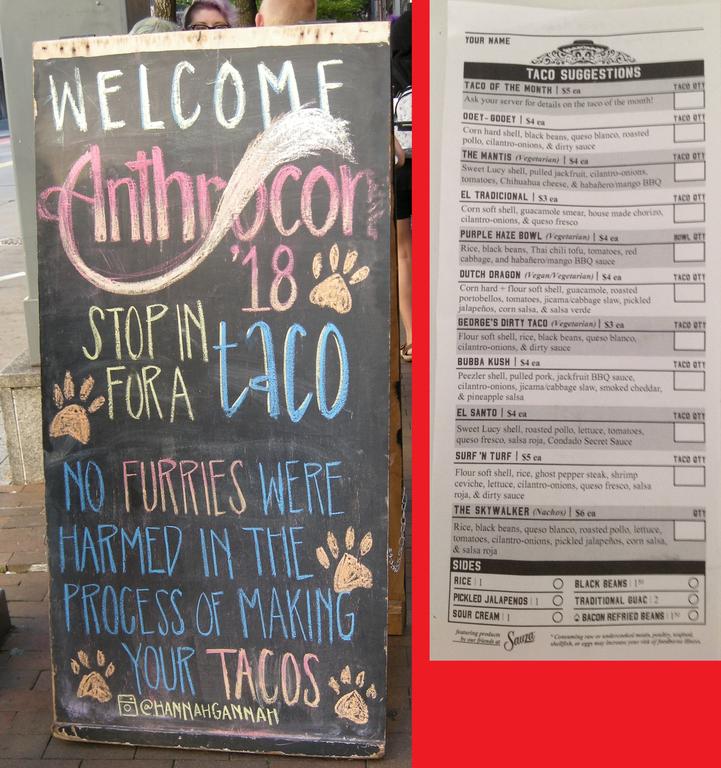 WELCOME
Anthrocon
'18
STOP IN
FOR A
taco
NO FURRIES WERE
HARMED IN THE
PROCESS OF MAKING
YOUR TACOS
@HANNAHGANNAH
YOUR NAME
TACO SUGGESTIONS
TACO OF THE MONTH | $5 ea TACO QTY
Ask your server for details on the taco of the month!
OOEY-GOOEY | $4 ea TACO QTY
Corn hard shell, black beans, queso blanco, roasted
pollo, cilantro-onions, & dirty sauce
THE MANTIS (Vegetarian) | $4 ea TACO QTY
Sweet Lucy shell, pulled jackfruit, cilantro-onions,
tomatoes, Chihuahua cheese, & habañero/mango BBQ
EL TRADICIONAL | $3 ea TACO QTY
Corn soft shell, guacamole smear, house made chorizo,
cilantro-onions, & queso fresco
PURPLE HAZE BOWL (Vegetarian) | $4 ea BOWL QTY
Rice, black beans, Thai chili tofu, tomatoes, red
cabbage, and habañero/mango BBQ sauce
DUTCH DRAGON (Vegan/Vegetarian) | $4 ea TACO QTY
Corn hard + flour soft shell, guacamole, roasted
portobellos, tomatoes, jicama/cabbage slaw, pickled
jalapeños, corn salsa, & salsa verde
GEORGE'S DIRTY TACO (Vegetarian) | $3 ea TACO QTY
Flour soft shell, rice, black beans, queso blanco,
cilantro-onions, & dirty sauce
BUBBA KUSH | $4 ea TACO QTY
Peezler shell, pulled pork, jackfruit BBQ sauce,
cilantro-onions, jicama/cabbage slaw, smoked cheddar,
& pineapple salsa
EL SANTO | $4 ea TACO QTY
Sweet Lucy shell, roasted pollo, lettuce, tomatoes,
queso fresco, salsa roja, Condado Secret Sauce
SURF 'N TURF | $5 ea TACO QTY
Flour soft shell, rice, ghost pepper steak, shrimp
ceviche, lettuce, cilantro-onions, queso fresco, salsa
roja, & dirty sauce
THE SKYWALKER (Nachos) | $6 ea QTY
Rice, black beans, queso blanco, roasted pollo, lettuce,
tomatoes, cilantro-onions, pickled jalapeños, corn salsa,
& salsa roja
SIDES
RICE | 1 BLACK BEANS | 1⁵⁰
PICKLED JALAPENOS | 1 TRADITIONAL GUAC | 2
SOUR CREAM | 1 BACON REFRIED BEANS | 1⁵⁰
featuring products
by our friends at Sauza
*Consuming raw or undercooked meats, poultry, seafood,
shellfish, or eggs may increase your risk of foodborne illness.